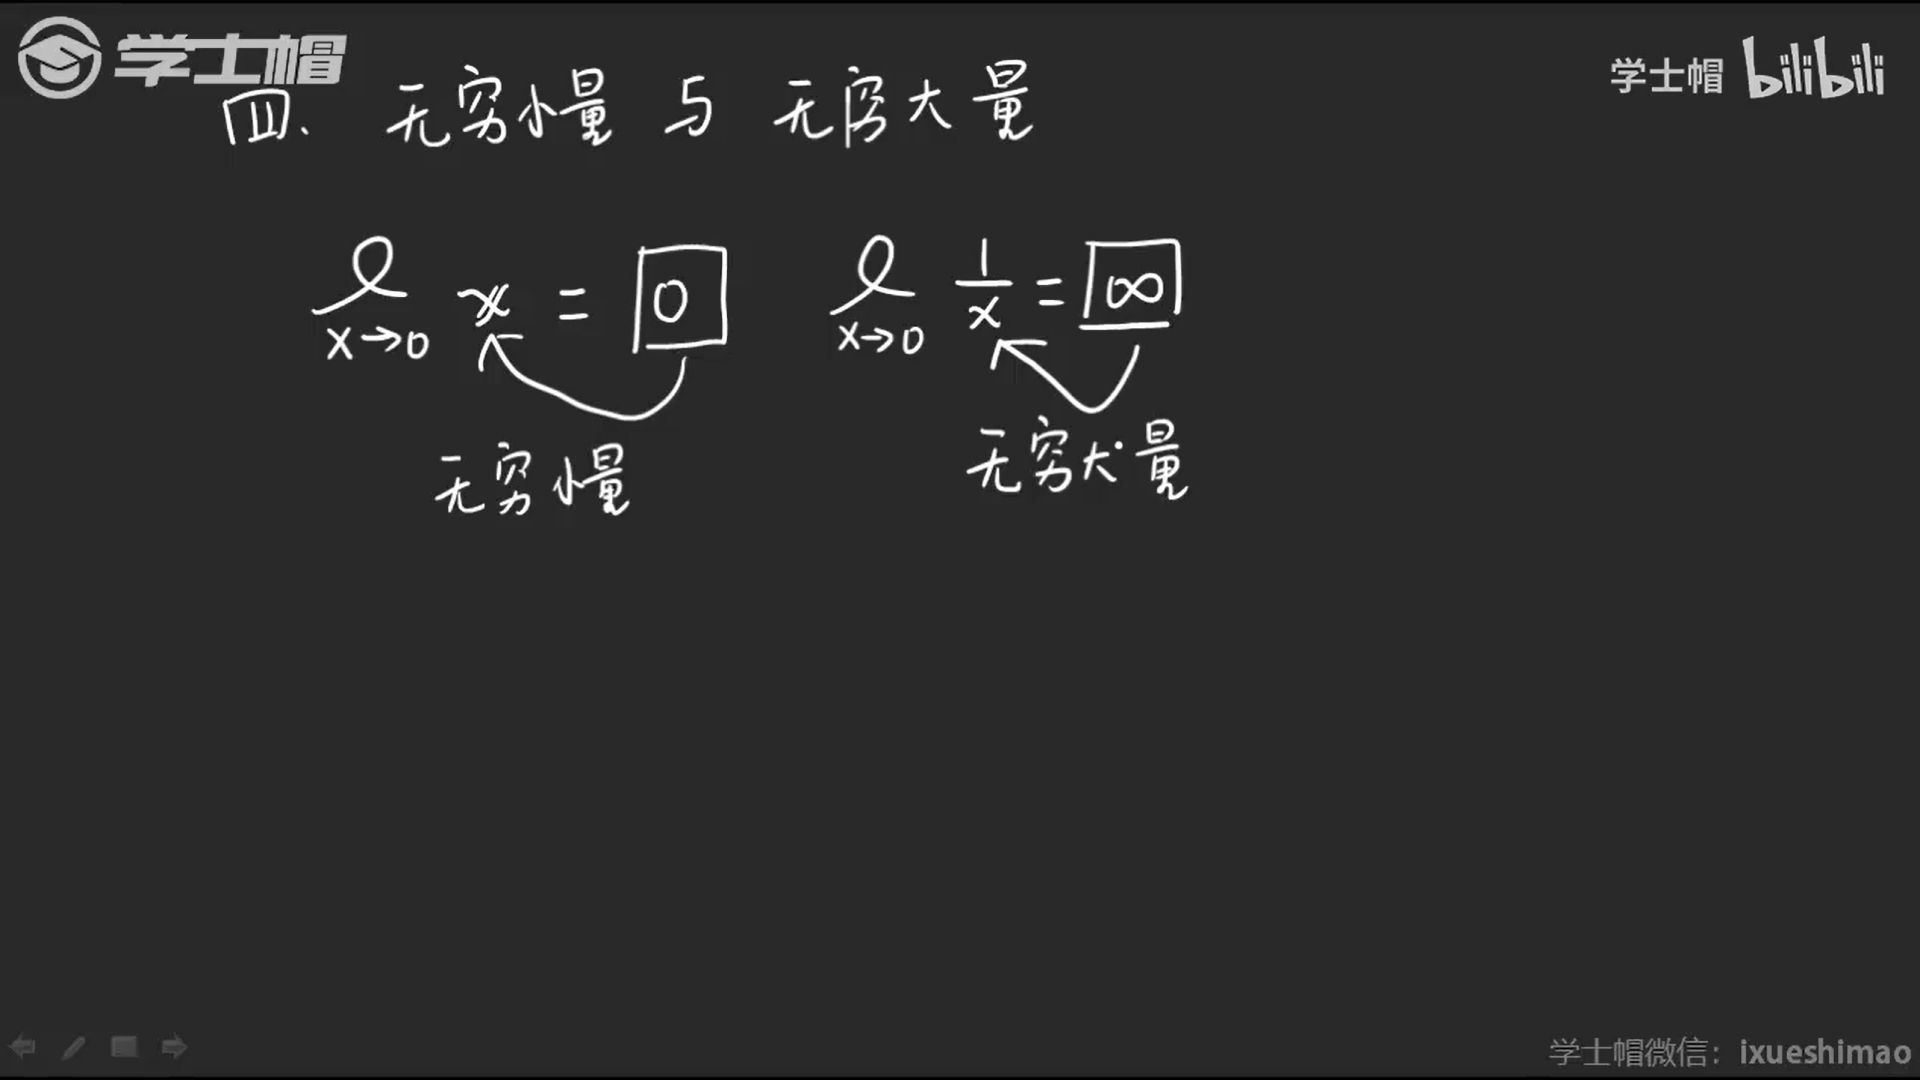 学士帽
学士帽 bilibili
四、无穷小量 与 无穷大量
ℓ x = 0
x→0
ℓ 1/x = ∞
x→0
无穷小量
无穷犬量
学士帽微信：ixueshimao